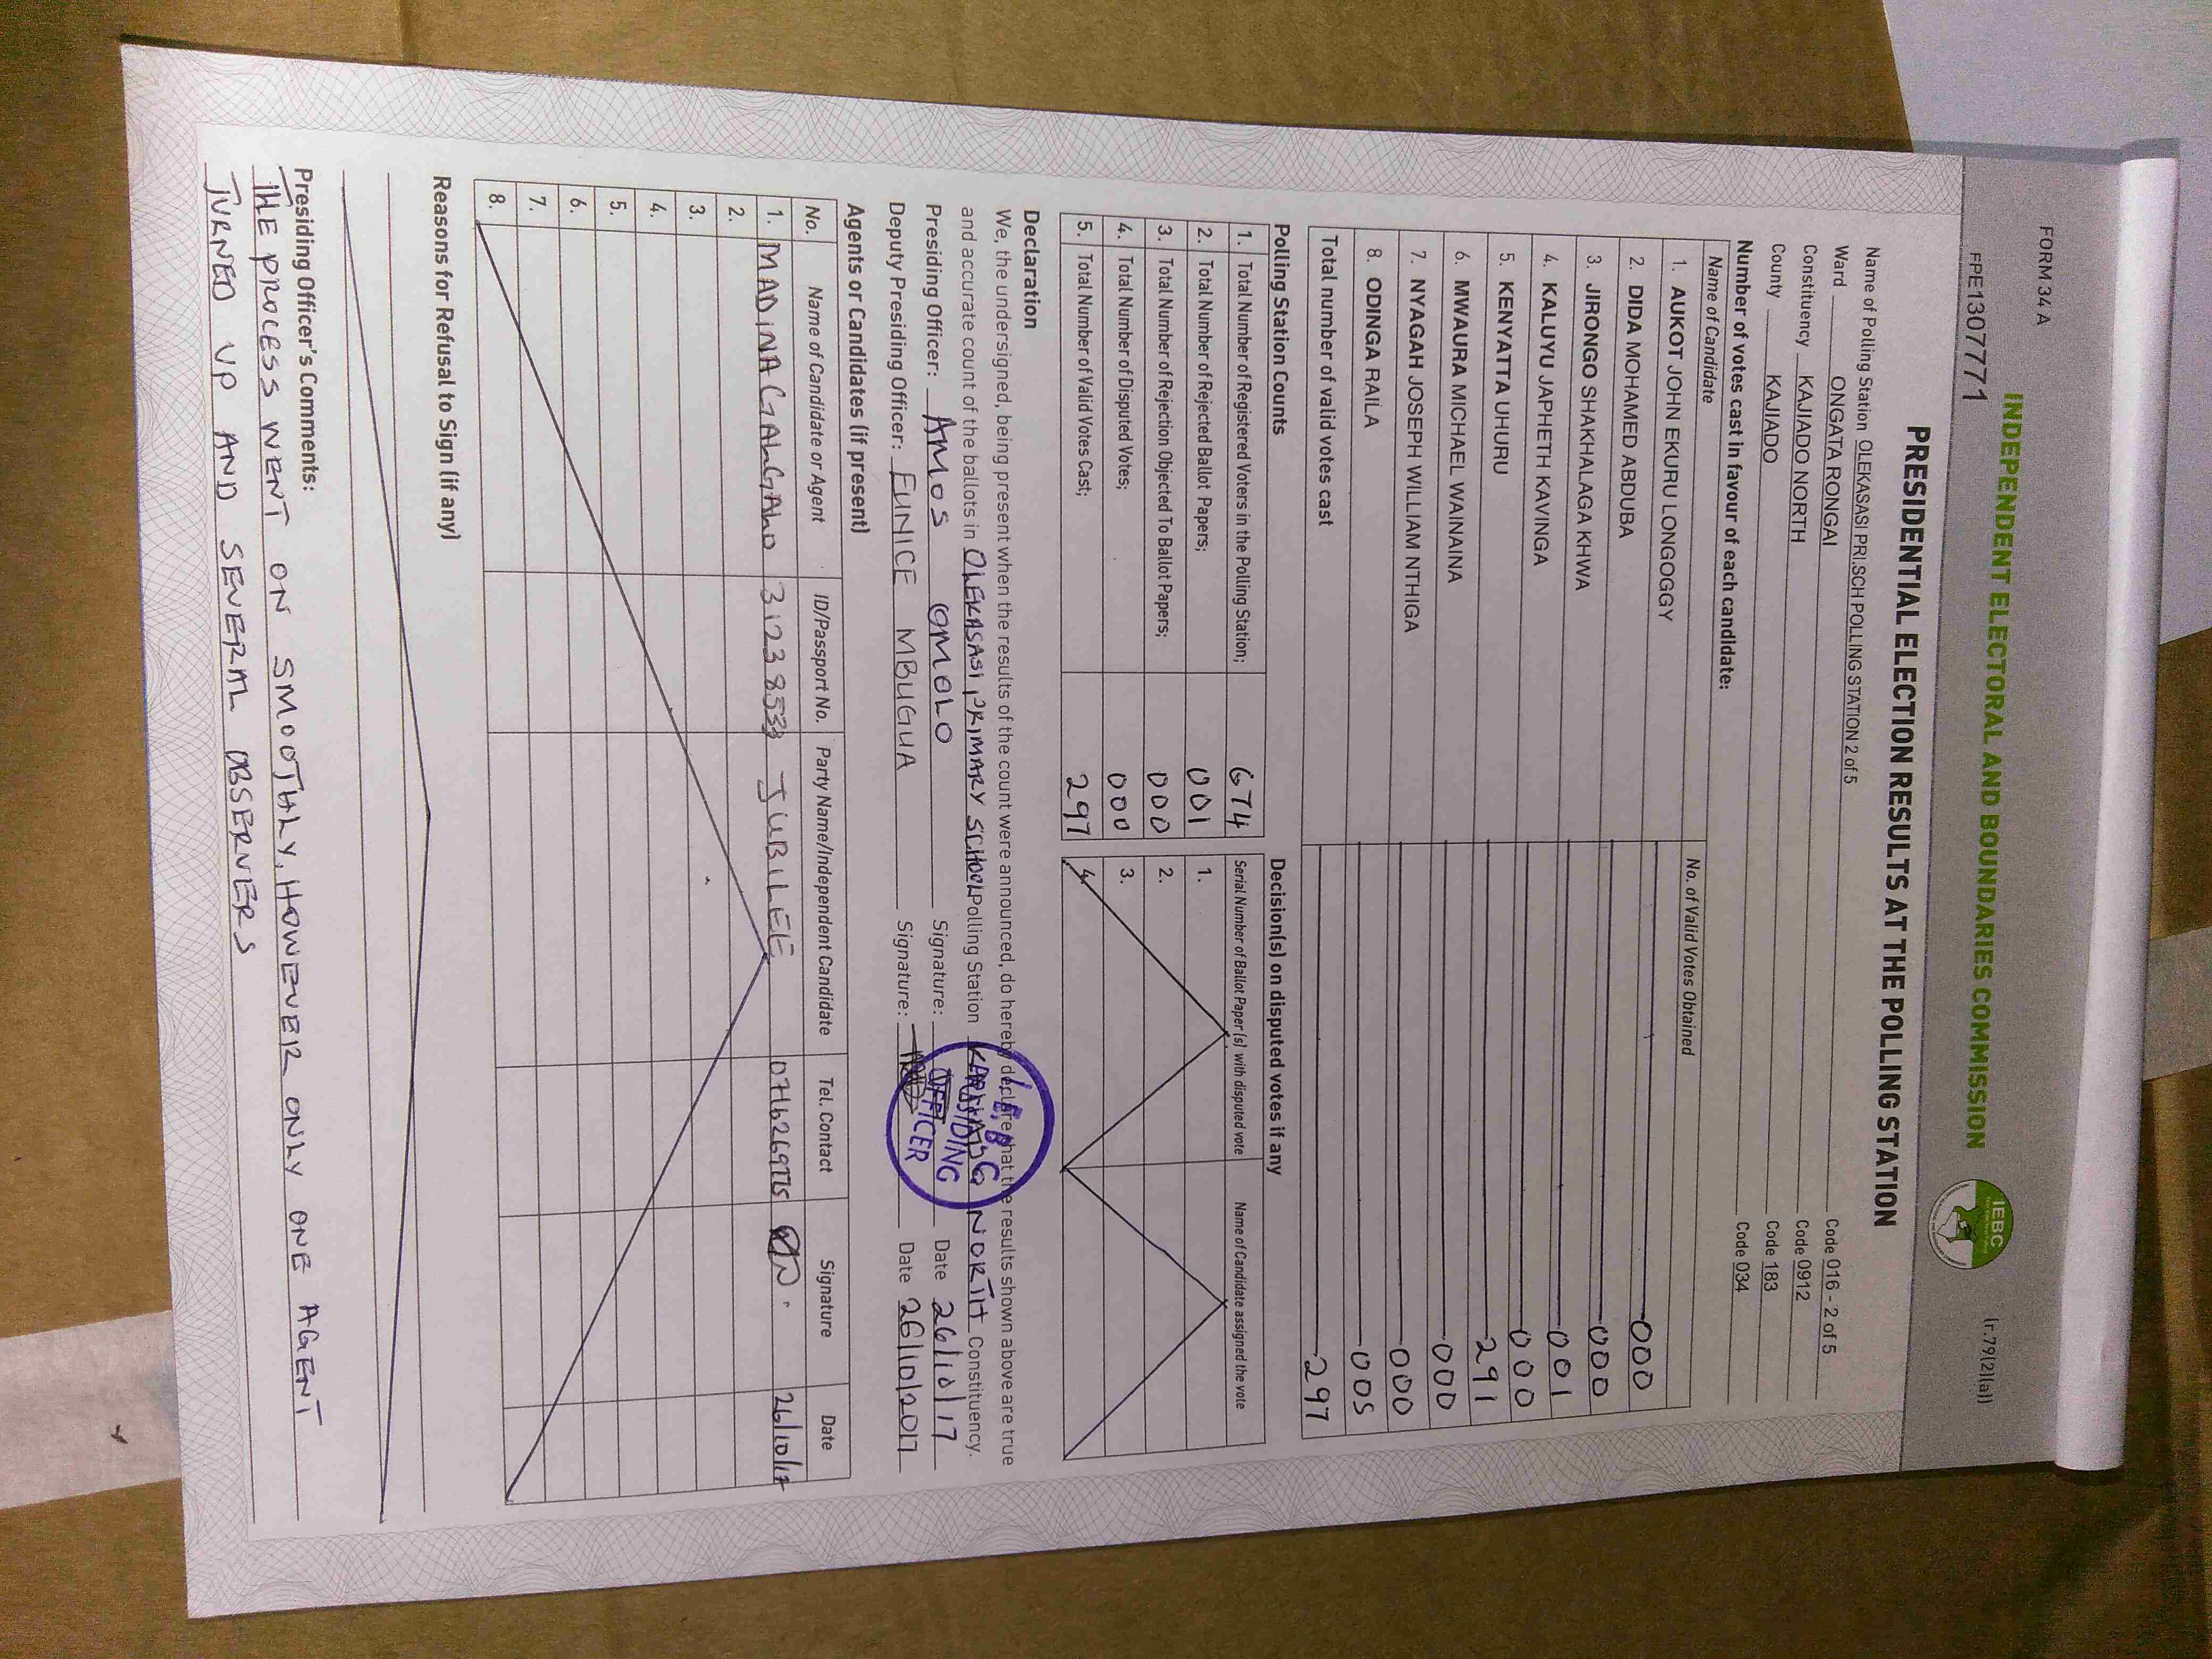 FORM 34A
(r.79(2)(a))
FPE1307771
INDEPENDENT ELECTORAL AND BOUNDARIES COMMISSION
IEBC
PRESIDENTIAL ELECTION RESULTS AT THE POLLING STATION
Name of Polling Station OLEKASASI PRI.SCH POLLING STATION 2 of 5 Code 016 - 2 of 5
Ward ONGATA RONGAI Code 0912
Constituency KAJIADO NORTH Code 183
County KAJIADO Code 034
Number of votes cast in favour of each candidate:
Name of Candidate No. of Valid Votes Obtained
1. AUKOT JOHN EKURU LONGOGGY 000
2. DIDA MOHAMED ABDUBA 000
3. JIRONGO SHAKHALAGA KHWA 001
4. KALUYU JAPHETH KAVINGA 000
5. KENYATTA UHURU 291
6. MWAURA MICHAEL WAINAINA 000
7. NYAGAH JOSEPH WILLIAM NTHIGA 000
8. ODINGA RAILA 005
Total number of valid votes cast 297
Polling Station Counts
1. Total Number of Registered Voters in the Polling Station; 674
2. Total Number of Rejected Ballot Papers; 001
3. Total Number of Rejection Objected To Ballot Papers; 000
4. Total Number of Disputed Votes; 000
5. Total Number of Valid Votes Cast; 297
Decision(s) on disputed votes if any
Serial Number of Ballot Paper(s) with disputed vote Name of Candidate assigned the vote
1.
2.
3.
4.
Declaration
We, the undersigned, being present when the results of the count were announced, do hereby declare that the results shown above are true
and accurate count of the ballots in OLEKASASI PRIMARY SCHOOL Polling Station KAJIADO NORTH Constituency.
Presiding Officer: AMOS OMOLO Signature: Date 26/10/17
Deputy Presiding Officer: EUNICE MBUGUA Signature: Date 26/10/2017
I.E.B.C
PRESIDING
OFFICER
Agents or Candidates (if present)
No. Name of Candidate or Agent ID/Passport No. Party Name/Independent Candidate Tel. Contact Signature Date
1. MADINA GALGALO 31238533 JUBILEE 0716269775 26/10/17
2.
3.
4.
5.
6.
7.
8.
Reasons for Refusal to Sign (if any)
Presiding Officer's Comments:
THE PROCESS WENT ON SMOOTHLY, HOWEVER ONLY ONE AGENT
TURNED UP AND SEVERAL OBSERVERS